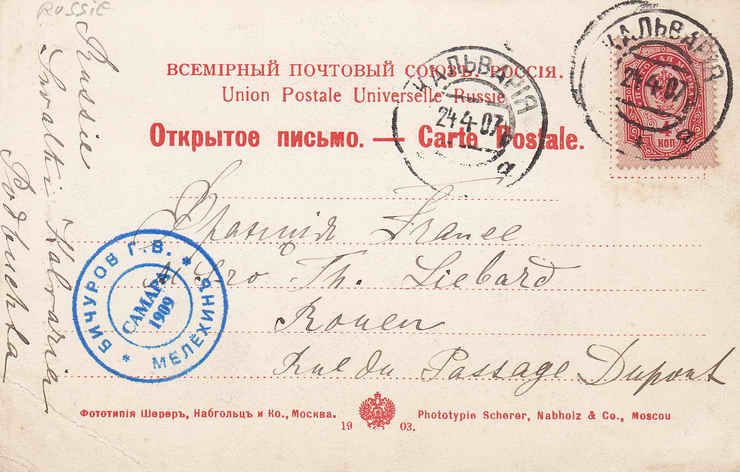 RUSSIE
Russie
Suwalki Kalvaria
ВСЕМІРНЫЙ ПОЧТОВЫЙ СОЮЗЪ. РОССІЯ.
Union Postale Universelle Russie
Открытое письмо. — Carte Postale.
КАЛЬВАРІЯ
24.4.07
а
КАЛЬВАРІЯ
24.4.07
а
КОП
France
Th. Liebard
Rouen
Rue du Passage Dupont
БИЧУРОВ Г.В. * МЕЛЁХИНЯ *
САМАРА
1909
Фототипія Шереръ, Набгольцъ и Ко., Москва.
Phototypie Scherer, Nabholz & Co., Moscou
19 03.